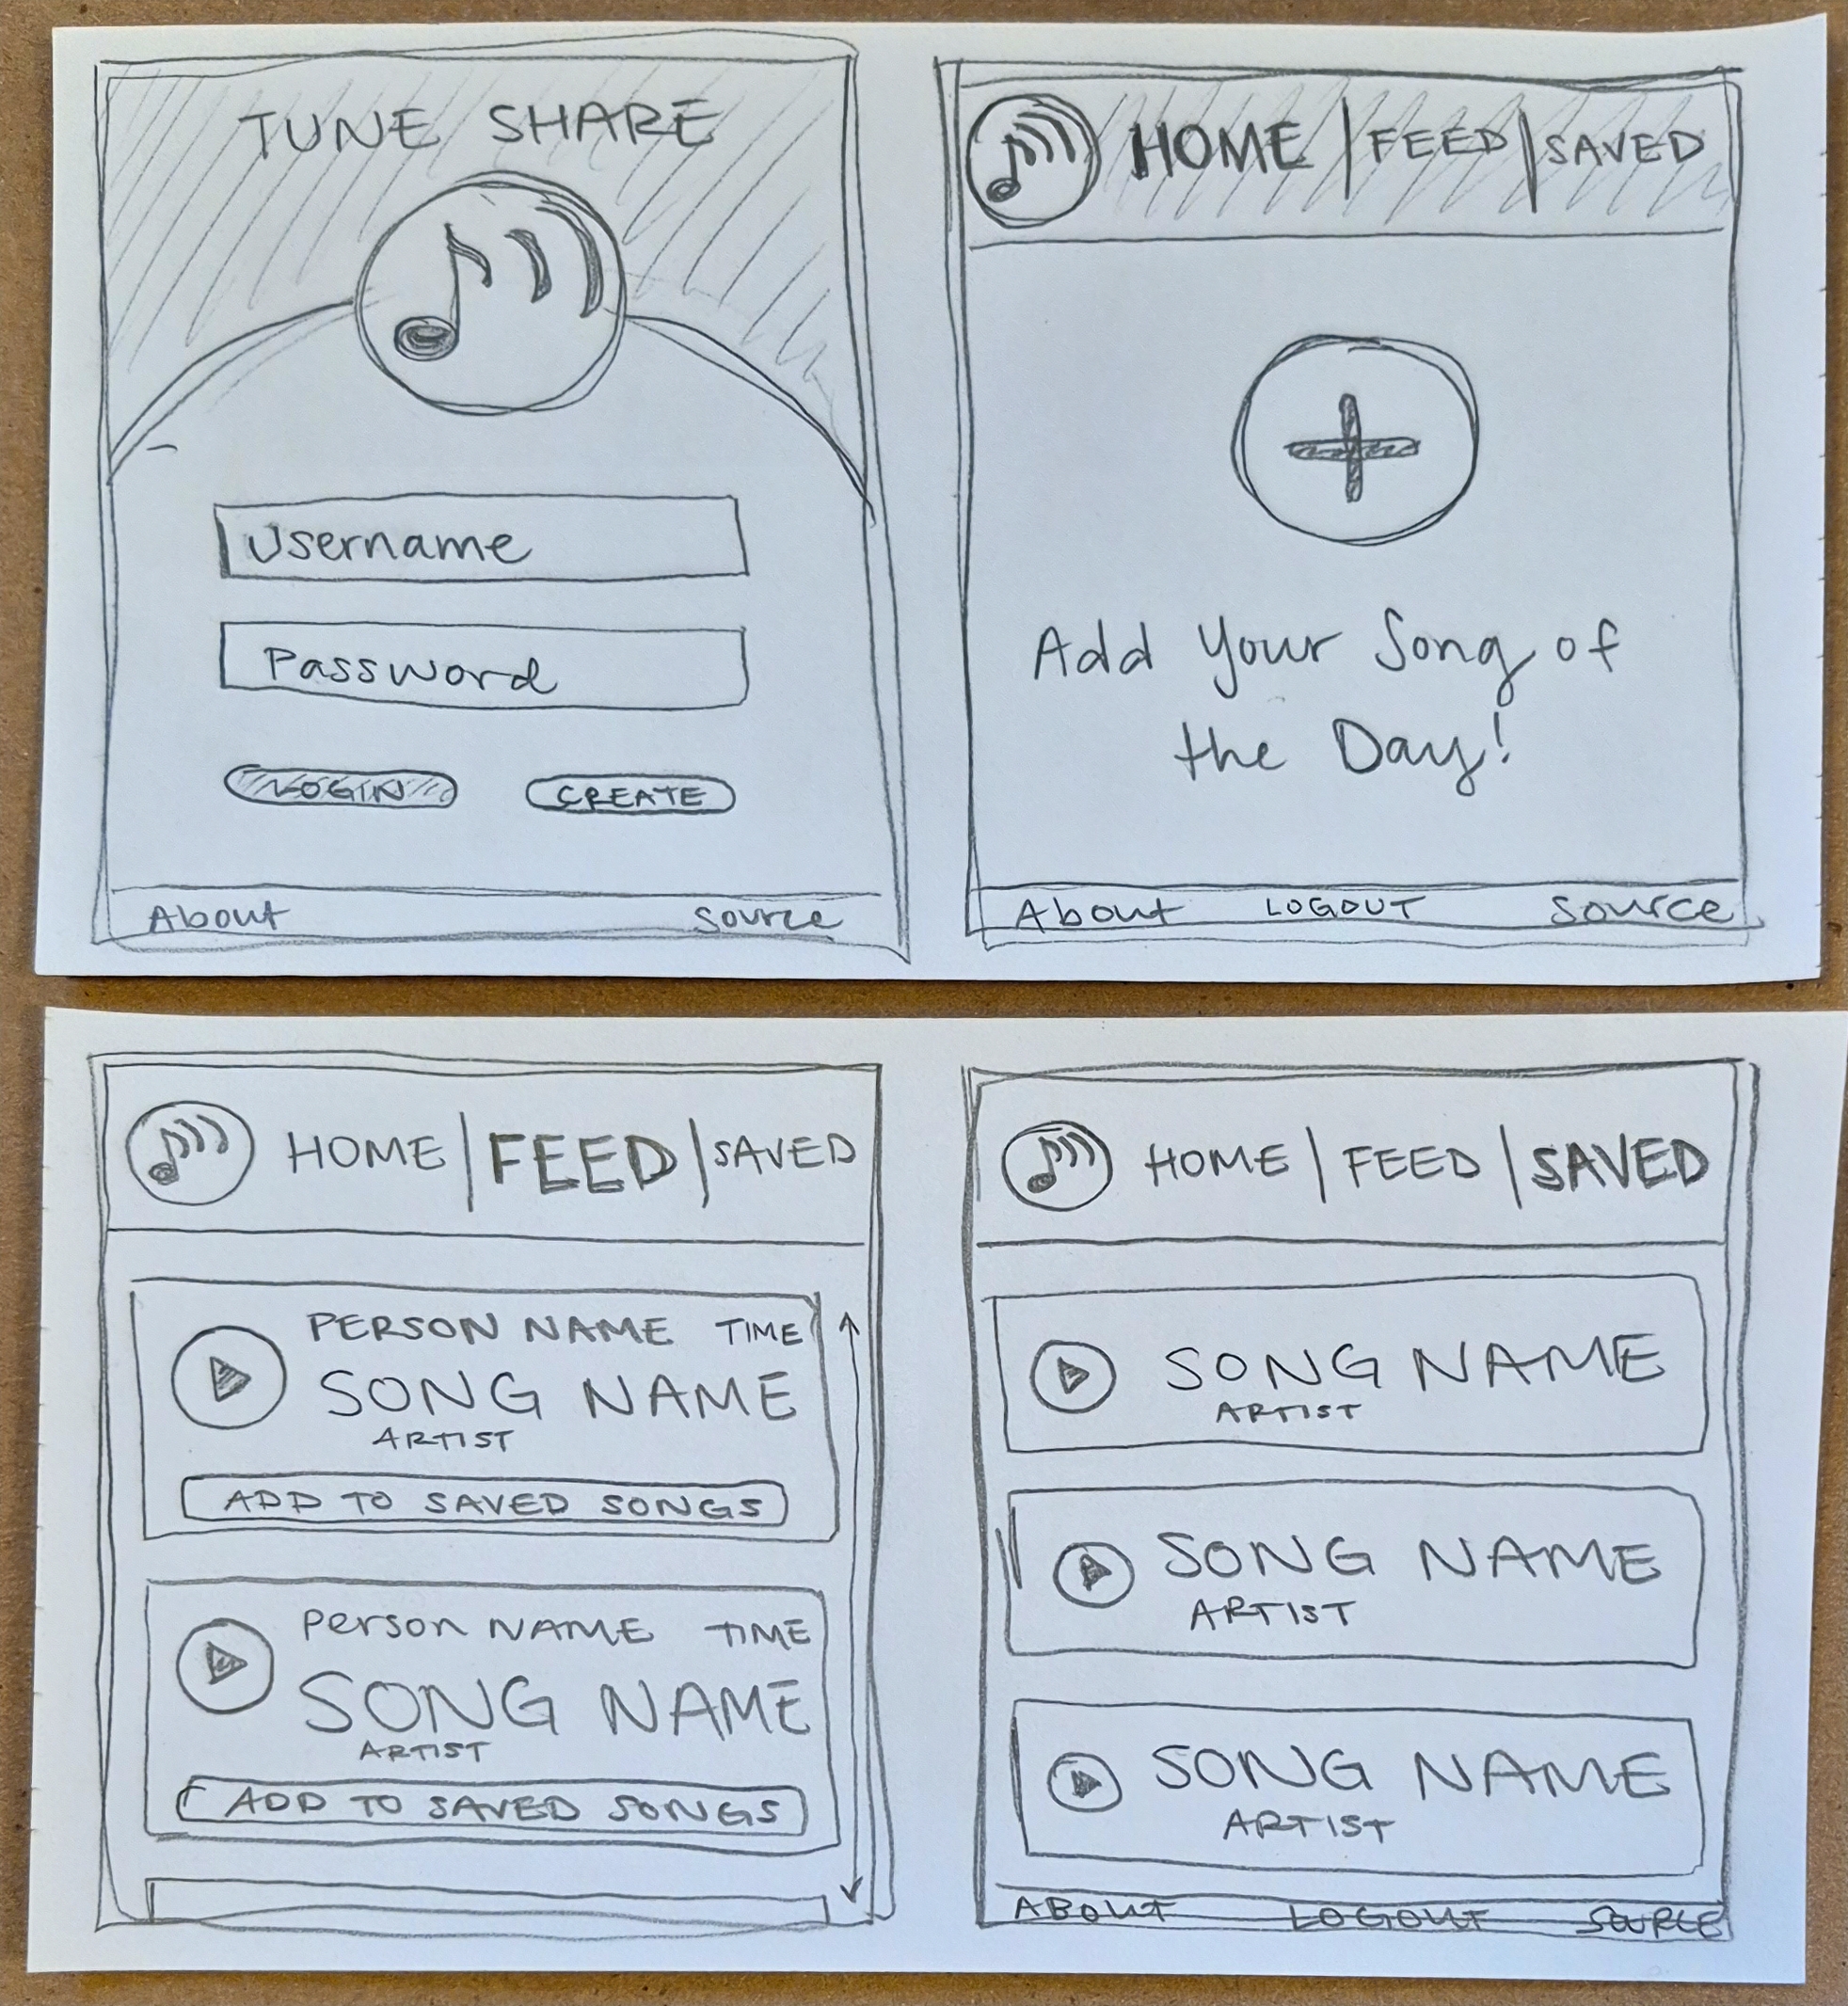 TUNE SHARE
Username
Password
LOGIN CREATE
About Source
HOME | FEED | SAVED
Add Your Song of
the Day!
About LOGOUT Source
HOME | FEED | SAVED
PERSON NAME TIME
SONG NAME
ARTIST
ADD TO SAVED SONGS
Person NAME TIME
SONG NAME
ARTIST
ADD TO SAVED SONGS
HOME | FEED | SAVED
SONG NAME
ARTIST
SONG NAME
ARTIST
SONG NAME
ARTIST
ABOUT LOGOUT SOURCE